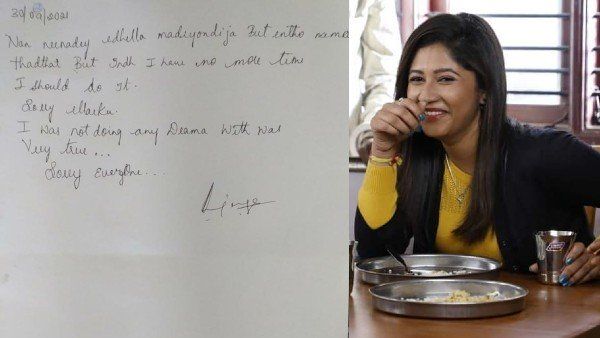 30/09/2021
Nan neenadey edhella madiyondija But entho name
thadthat But Indh I have no more time
I should do it.
Sorry
I was not doing any Drama With was
Very true...
Sorry everyone....